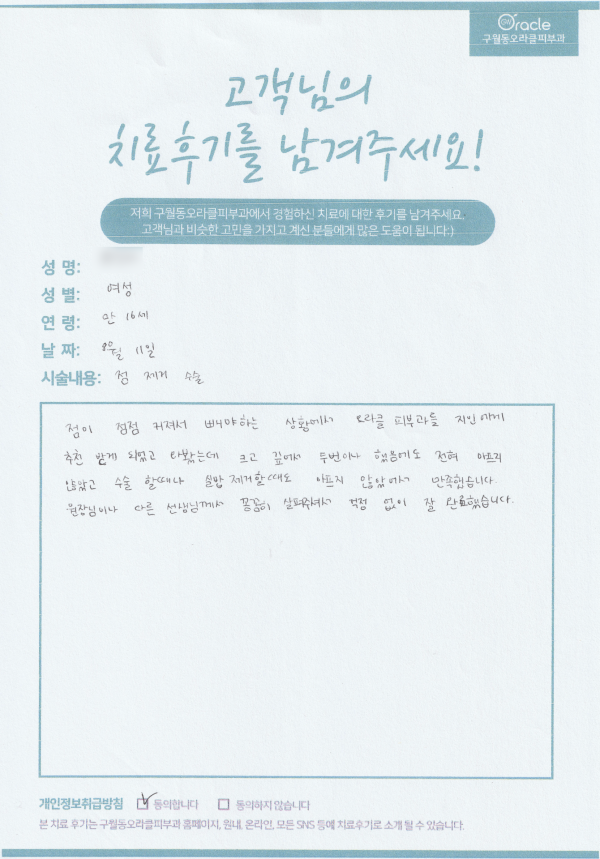 Oracle
구월동오라클피부과
고객님의
치료후기를 남겨주세요!
저희 구월동오라클피부과에서 경험하신 치료에 대한 후기를 남겨주세요.
고객님과 비슷한 고민을 가지고 계신 분들에게 많은 도움이 됩니다:)
성 명:
성 별: 여성
연 령: 만 16세
날 짜: 8월 11일
시술내용: 점 제거 수술
점이 점점 커져서 빼야하는 상황에서 오라클 피부과를 지인에게
추천 받게 되었고 와봤는데 크고 깊어서 두번이나 했음에도 전혀 아프지
않았고 수술 할때나 실밥 제거할때도 아프지 않았어서 만족했습니다.
원장님이나 다른 선생님께서 꼼꼼히 살펴주셔서 걱정 없이 잘 완료했습니다.
개인정보취급방침 동의합니다 동의하지 않습니다
본 치료 후기는 구월동오라클피부과 홈페이지, 원내, 온라인, 모든 SNS 등에 치료후기로 소개 될 수 있습니다.